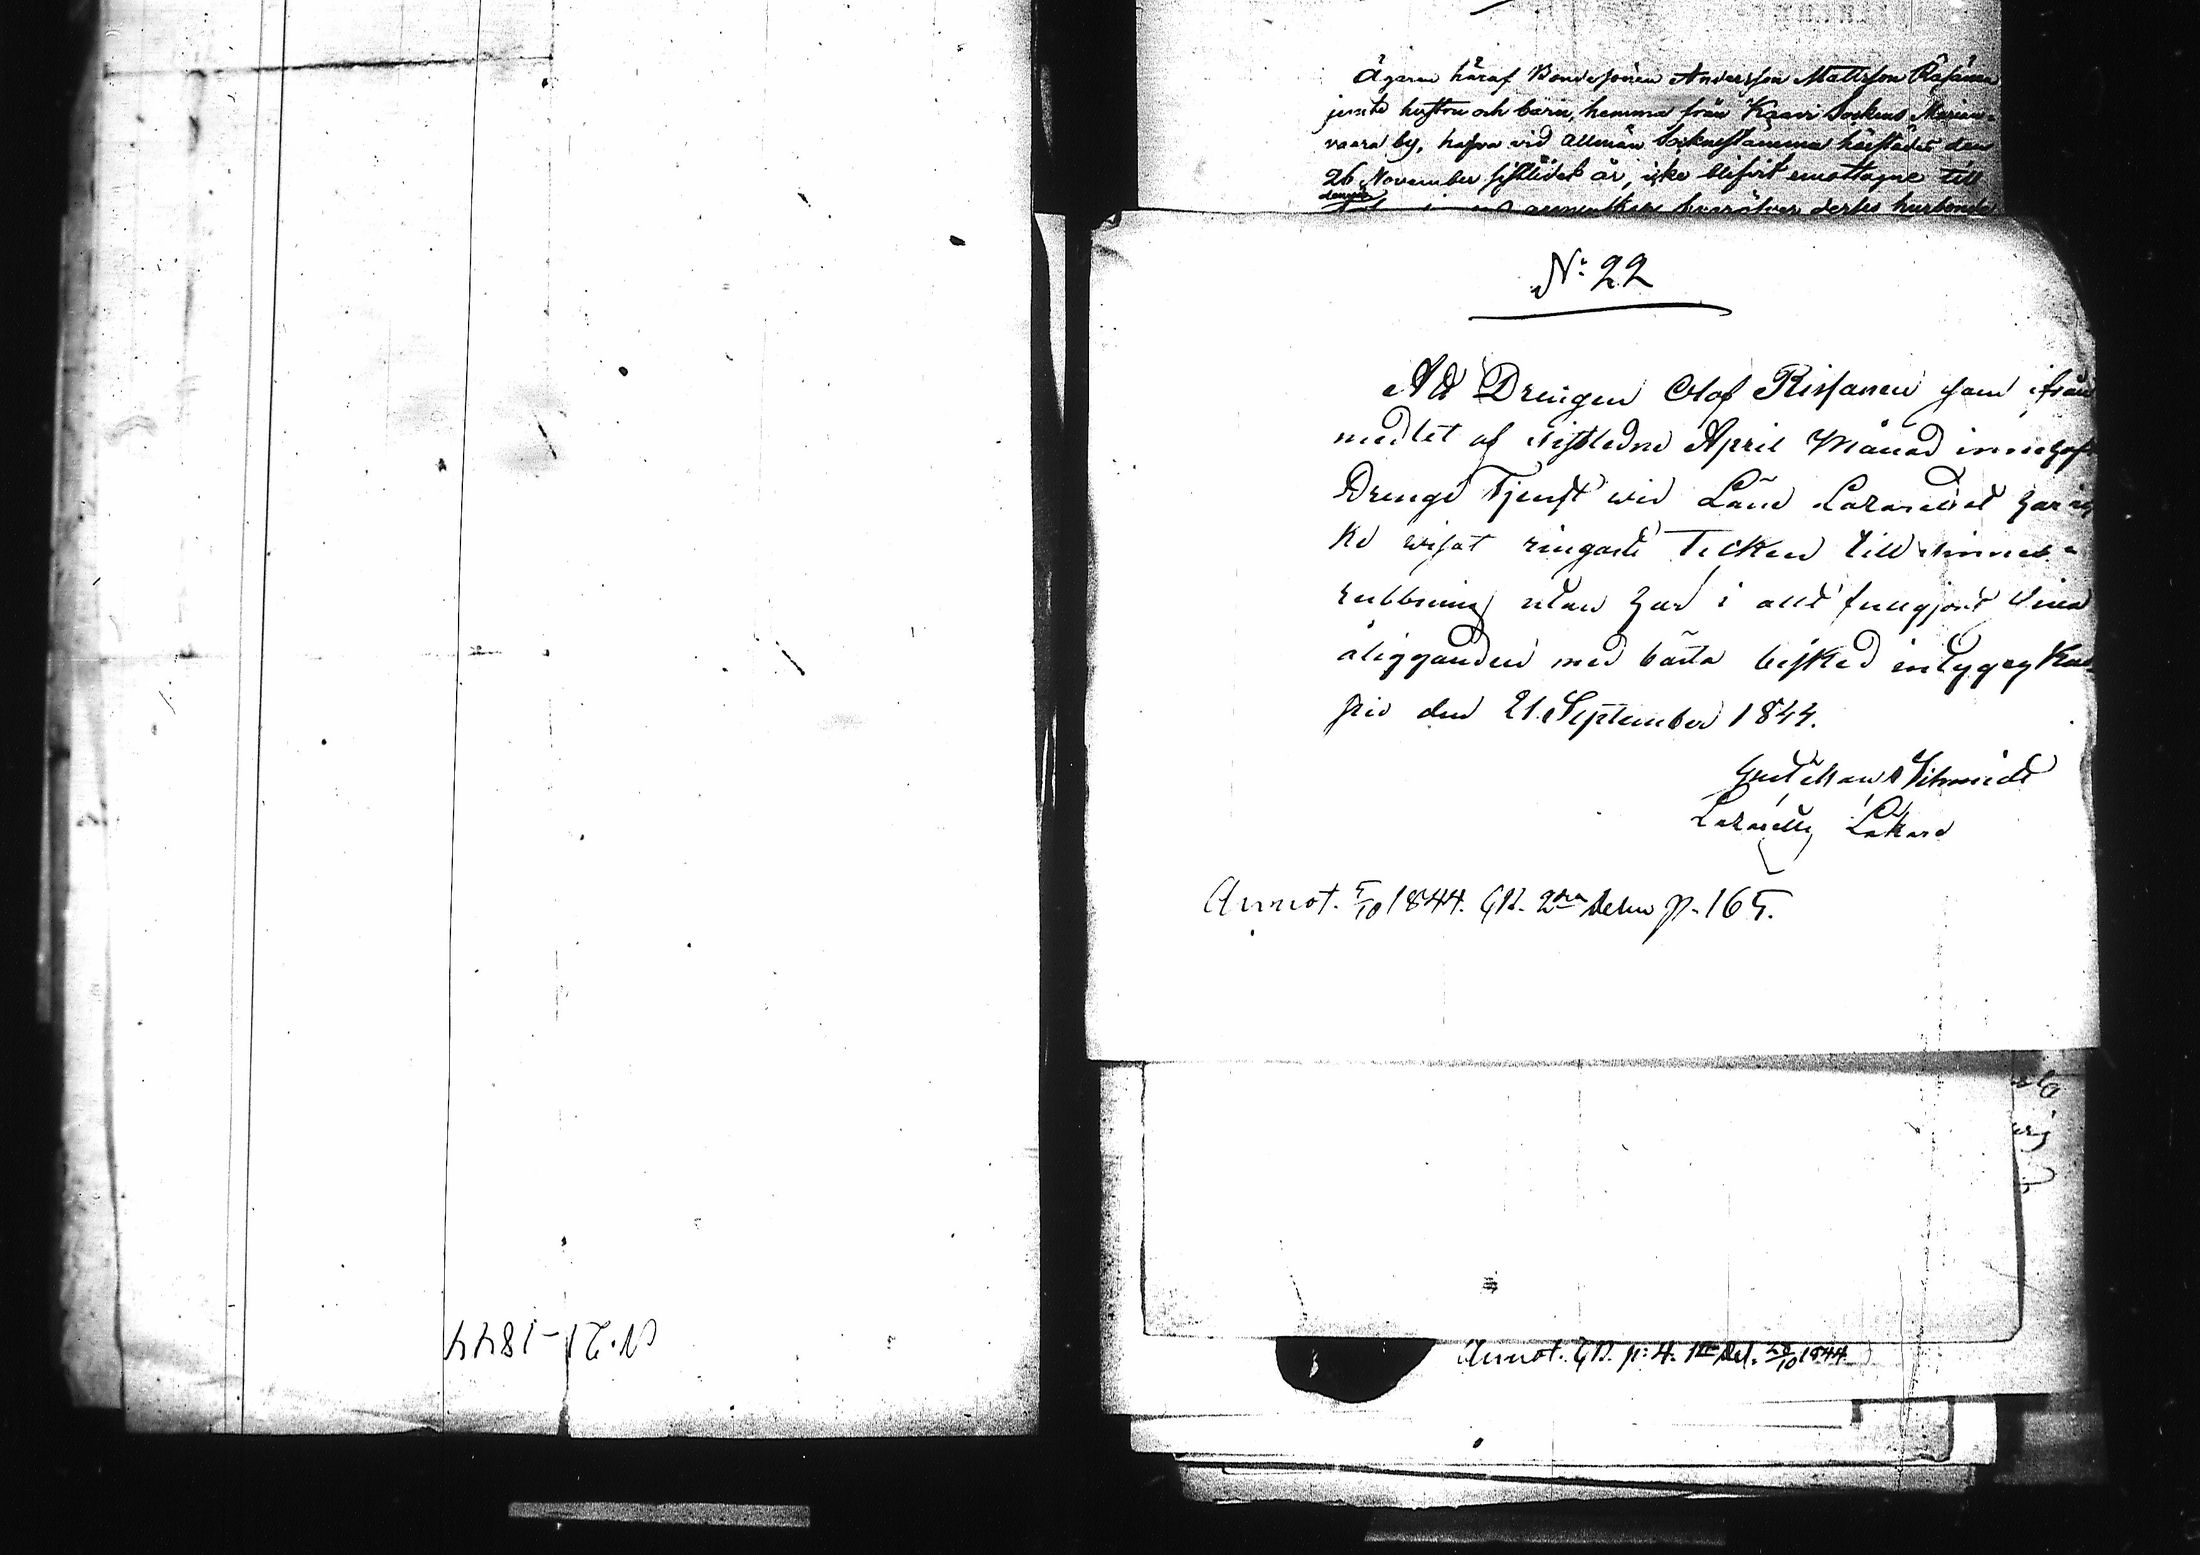 Ägaren häraf Bondesonen Andersson Mattsson Räsänen
jemte hustru och barn, hemma från Kaavi Sockens Marien-
vaara by, hafva vid allmän Socknestämma härstädes den
26 November sistlidet år, icke blifvit emottagne till
hvaröfver derles husbonde
N: 22
At Drengen Olof Rissanen som ifrån
medlet af sistledne April Månad innehaft
Drenge Tjenst wid Läne Lazarettet har ic
ke wisat ringaste Tecken till sinnes-
rubbning utan har i allt fullgjort sina
åligganden med bästa besked intygas Kuo-
pio den 21 September 1844.
Schmidt
Lazaretts Läkare
Annot. 5/10 1844. GB. 2dra delen p. 165.
Annot. GB. p: 4. 1sta del. 20/10 1844
N. 21-1844